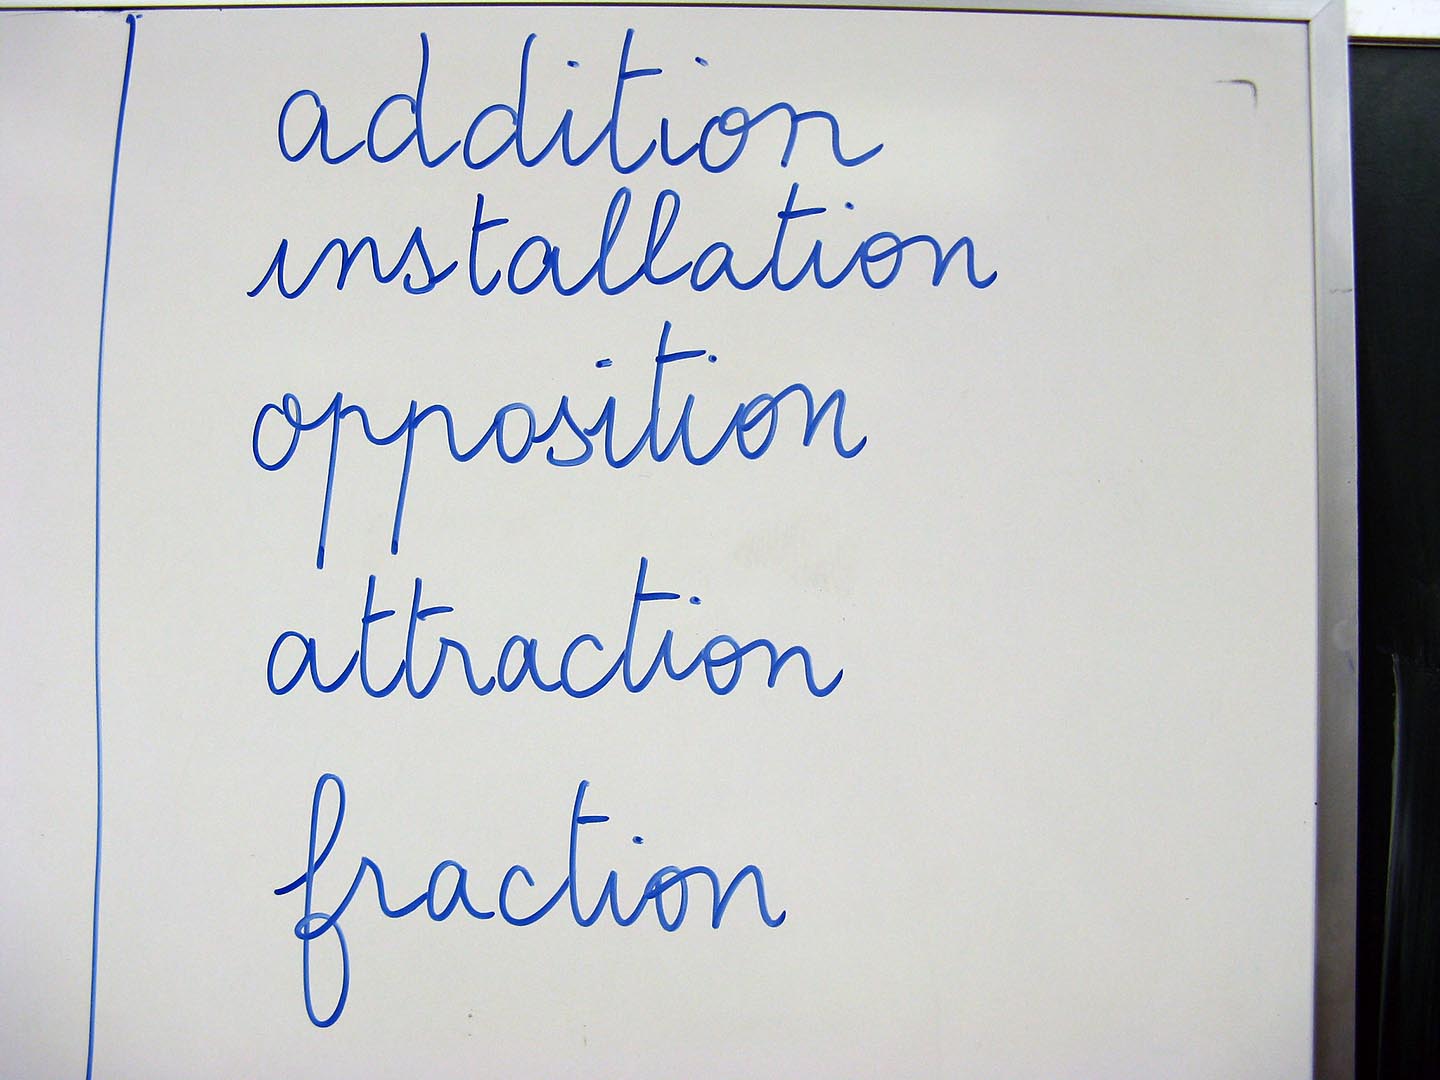 addition
installation
opposition
attraction
fraction